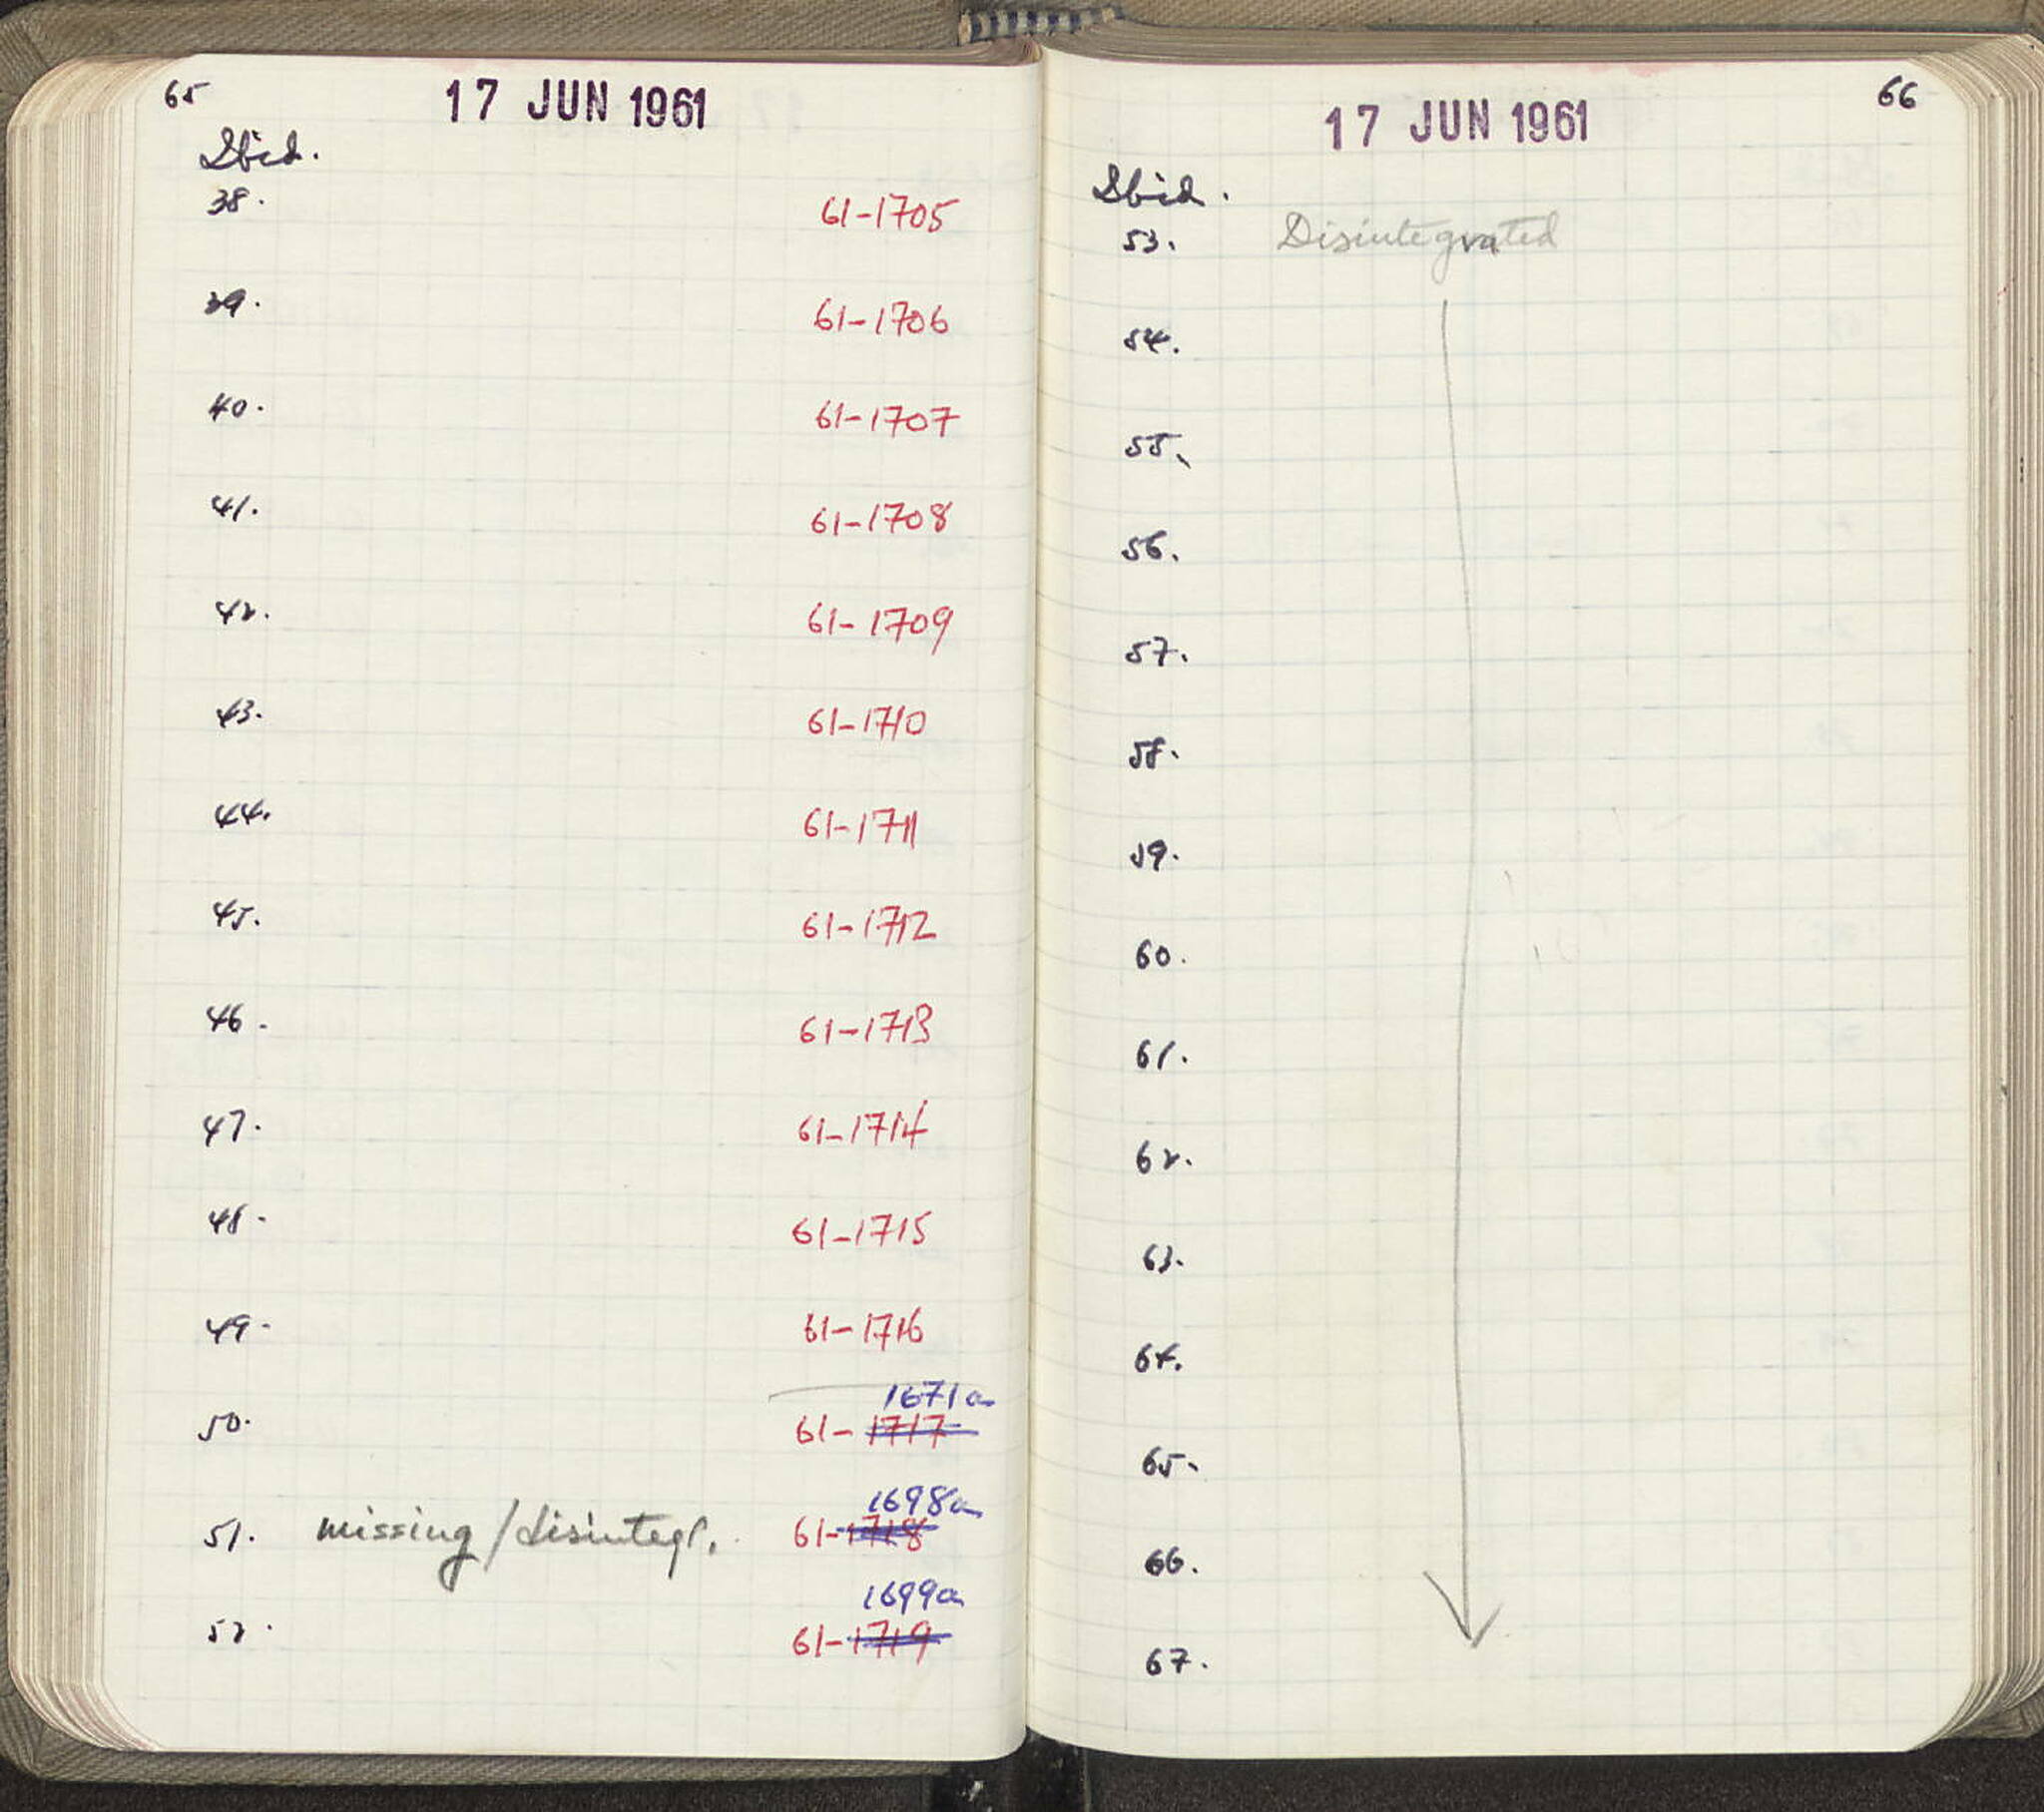 65
17 JUN 1961
Ibid.
38. 61-1705
39. 61-1706
40. 61-1707
41. 61-1708
42. 61-1709
43. 61-1710
44. 61-1711
45. 61-1712
46. 61-1713
47. 61-1714
48. 61-1715
49. 61-1716
1671a
50. 61-1717
1698a
51. missing/disintegr. 61-1718
1699a
52. 61-1719
66
17 JUN 1961
Ibid.
53. Disintegrated
54.
55.
56.
57.
58.
59.
60.
61.
62.
63.
64.
65.
66.
67.